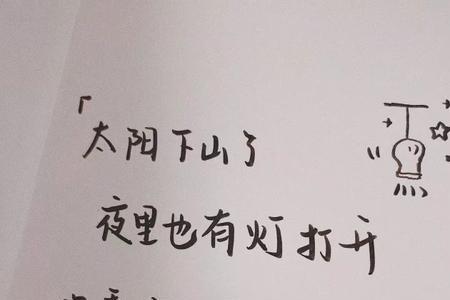 「太阳下山了
夜里也有灯打开